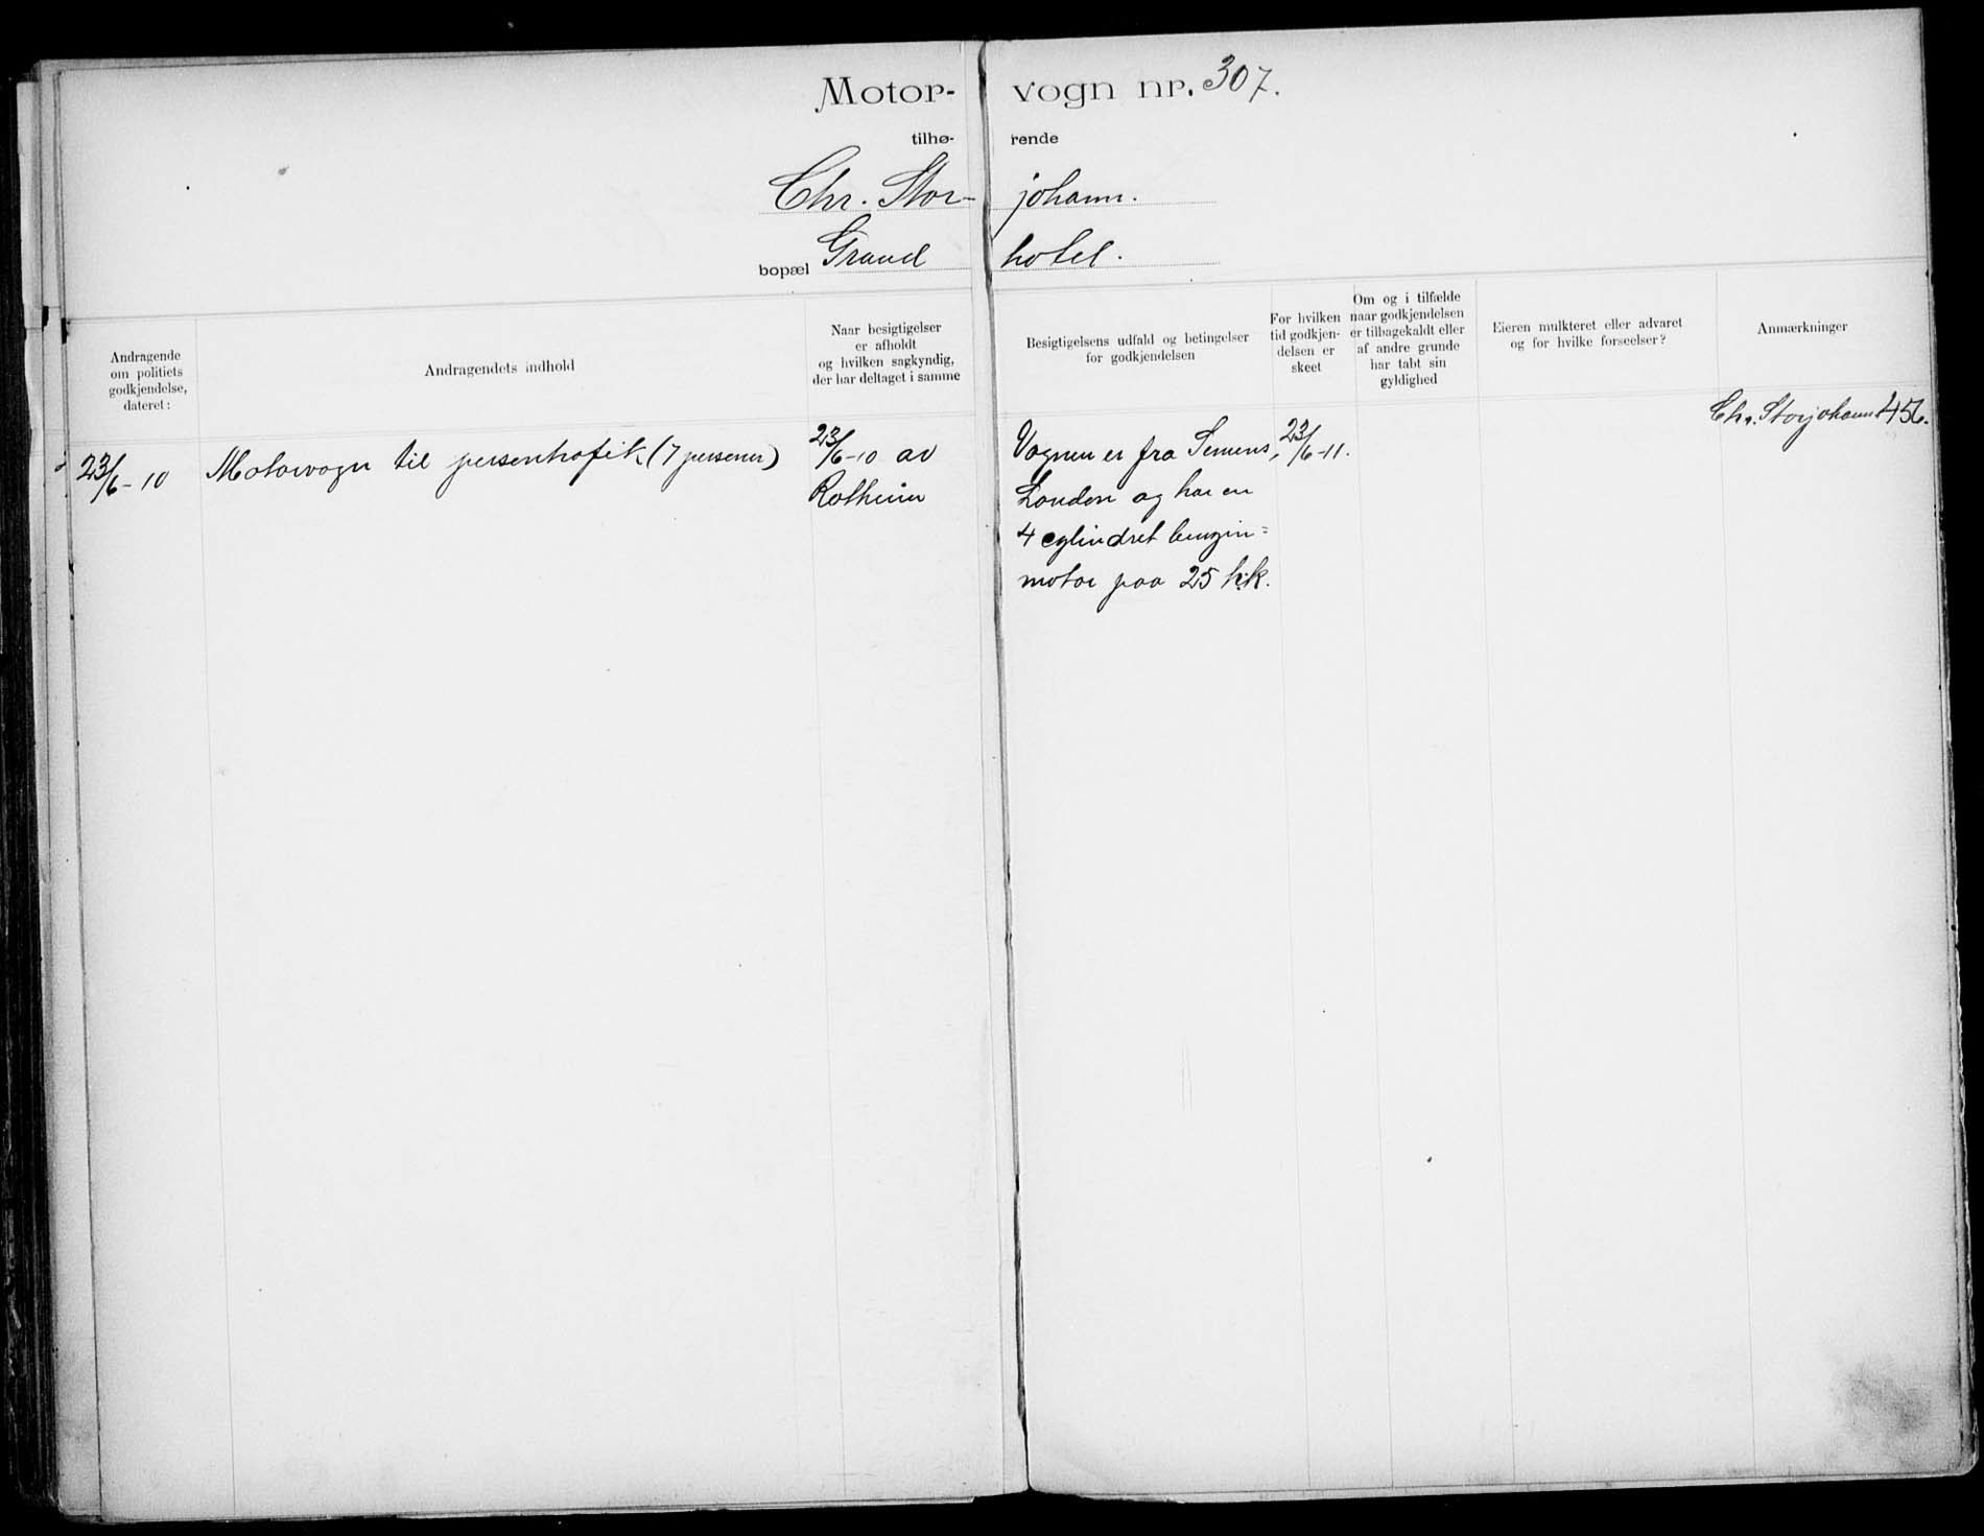 Motor-vogn nr. 307.
tilhørende
Chr. Stor-johann.
bopæl Grand hotel.
Andragende
om politiets
godkjendelse,
dateret:
Andragendets indhold
Naar besigtigelser
er afholdt
og hvilken sagkyndig,
der har deltaget i samme
Besigtigelsens udfald og betingelser
for godkjendelsen
For hvilken
tid godkjen-
delsen er
skeet
Om og i tilfælde
naar godkjendelsen
er tilbagekaldt eller
af andre grunde
har tabt sin
gyldighed
Eieren mulkteret eller advaret
og for hvilke forseelser?
Anmærkninger
23/6-10
Motorvogn til persontrafik (7 personer)
23/6-10 av
Rotheim
Vognen er fra Simms,
London og har en
4 cylindret benzin=
motor paa 25 h.k.
23/6-11.
Chr. Storjohann 456.